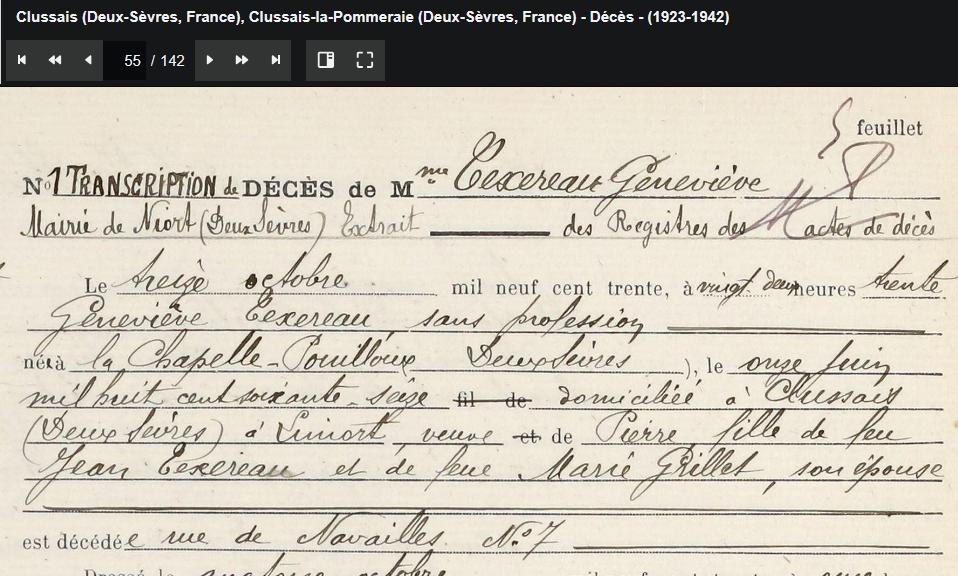 Clussais (Deux-Sèvres, France), Clussais-la-Pommeraie (Deux-Sèvres, France) - Décès - (1923-1942)
55 / 142
feuillet
N° 1 TRANSCRIPTION de DÉCÈS de Mme Texereau Geneviève
Mairie de Niort (Deux Sèvres) Extrait des Registres des actes de décès
Le treize octobre mil neuf cent trente, à vingt deux heures trente
Geneviève Texereau, sans profession
née à la Chapelle-Pouilloux ( Deux Sèvres ), le onze juin
mil huit cent soixante-seize fil de domiciliée à Clussais
(Deux Sèvres) à Limort, veuve et de Pierre, fille de feu
Jean Texereau et de feue Marie Grillet, son épouse
est décédée rue de Navailles N° 7
Dressé le quatorze octobre mil neuf cent trente à